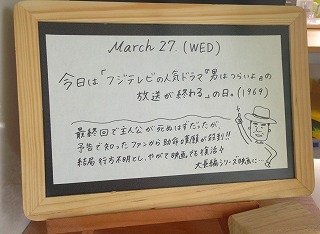 March 27. (WED)
今日は「フジテレビの人気ドラマ『男はつらいよ』の
放送が終わる」の日。(1969)
最終回で主人公が死ぬはずだったが、
予告で知ったファンから助命の嘆願が殺到!!
結局行方不明とし、やがて映画でも復活し
大長編シリーズ映画に…